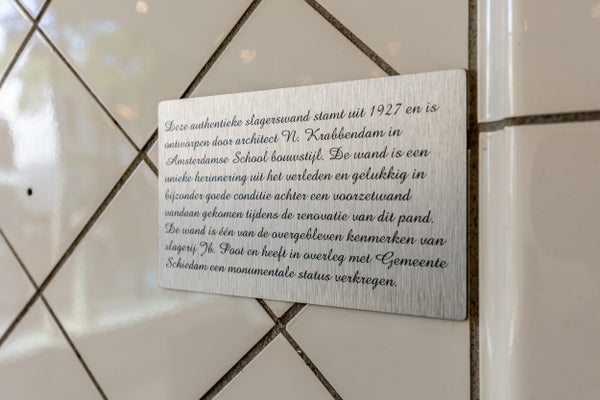 Deze authentieke slagerswand stamt uit 1927 en is
ontworpen door architect N. Krabbendam in
Amsterdamse School bouwstijl. De wand is een
unieke herinnering uit het verleden en gelukkig in
bijzonder goede conditie achter een voorzetwand
vandaan gekomen tijdens de renovatie van dit pand.
De wand is één van de overgebleven kenmerken van
slagerij Jb. Poot en heeft in overleg met Gemeente
Schiedam een monumentale status verkregen.